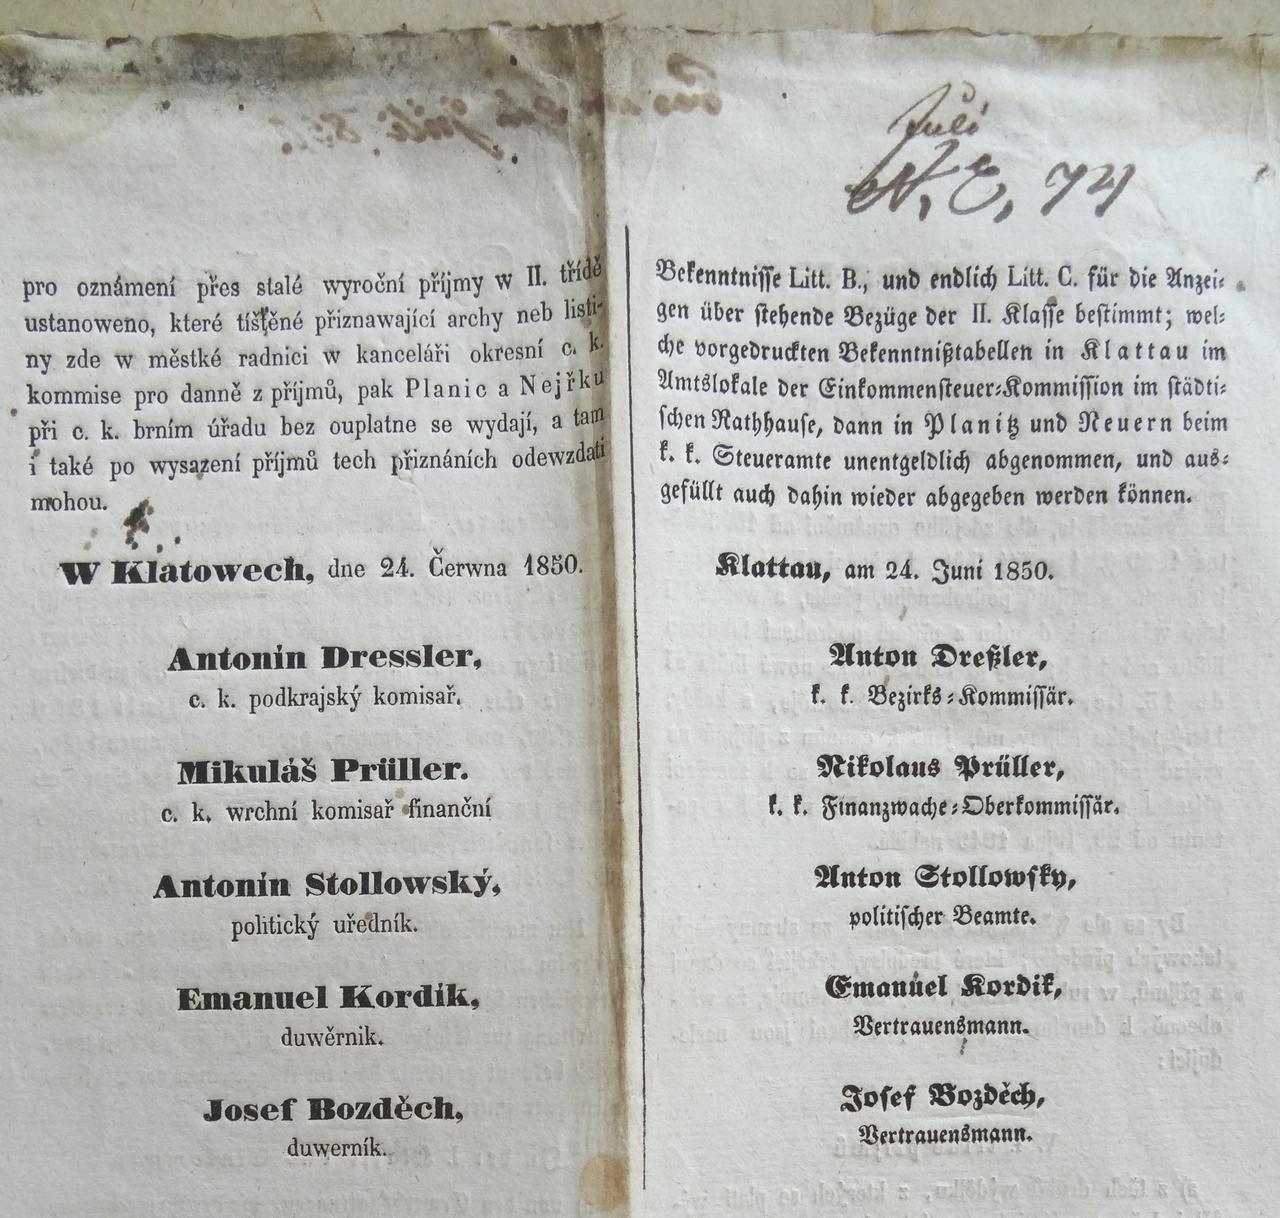 Juli
N. E. 74
pro oznámení přes stalé wyroční příjmy w II. třídě
ustanoweno, které tíštěné přiznawající archy neb listi-
ny zde w městké radnici w kanceláři okresní c. k.
kommise pro danně z příjmů, pak Planic a Nejřku
při c. k. brním úřadu bez ouplatne se wydají, a tam
i také po wysazení příjmů tech přiznáních odewzdati
mohou.
W Klatowech, dne 24. Čerwna 1850.
Antonín Dressler,
c. k. podkrajský komisař.
Mikuláš Prüller.
c. k. wrchní komisař finanční
Antonín Stollowský,
politický uředník.
Emanuel Kordík,
duwěrnik.
Josef Bozděch,
duwerník.
Bekenntnisse Litt. B., und endlich Litt. C. für die Anzei-
gen über stehende Bezüge der II. Klasse bestimmt; wel-
che vorgedruckten Bekenntnißtabellen in Klattau im
Amtslokale der Einkommensteuer-Kommission im städti-
schen Rathhause, dann in Planitz und Neuern beim
k. k. Steueramte unentgeldlich abgenommen, und aus-
gefüllt auch dahin wieder abgegeben werden können.
Klattau, am 24. Juni 1850.
Anton Dreßler,
k. k. Bezirks-Kommissär.
Nikolaus Prüller,
k. k. Finanzwache-Oberkommissär.
Anton Stollowsky,
politischer Beamte.
Emanuel Kordik,
Vertrauensmann.
Josef Bozděch,
Vertrauensmann.